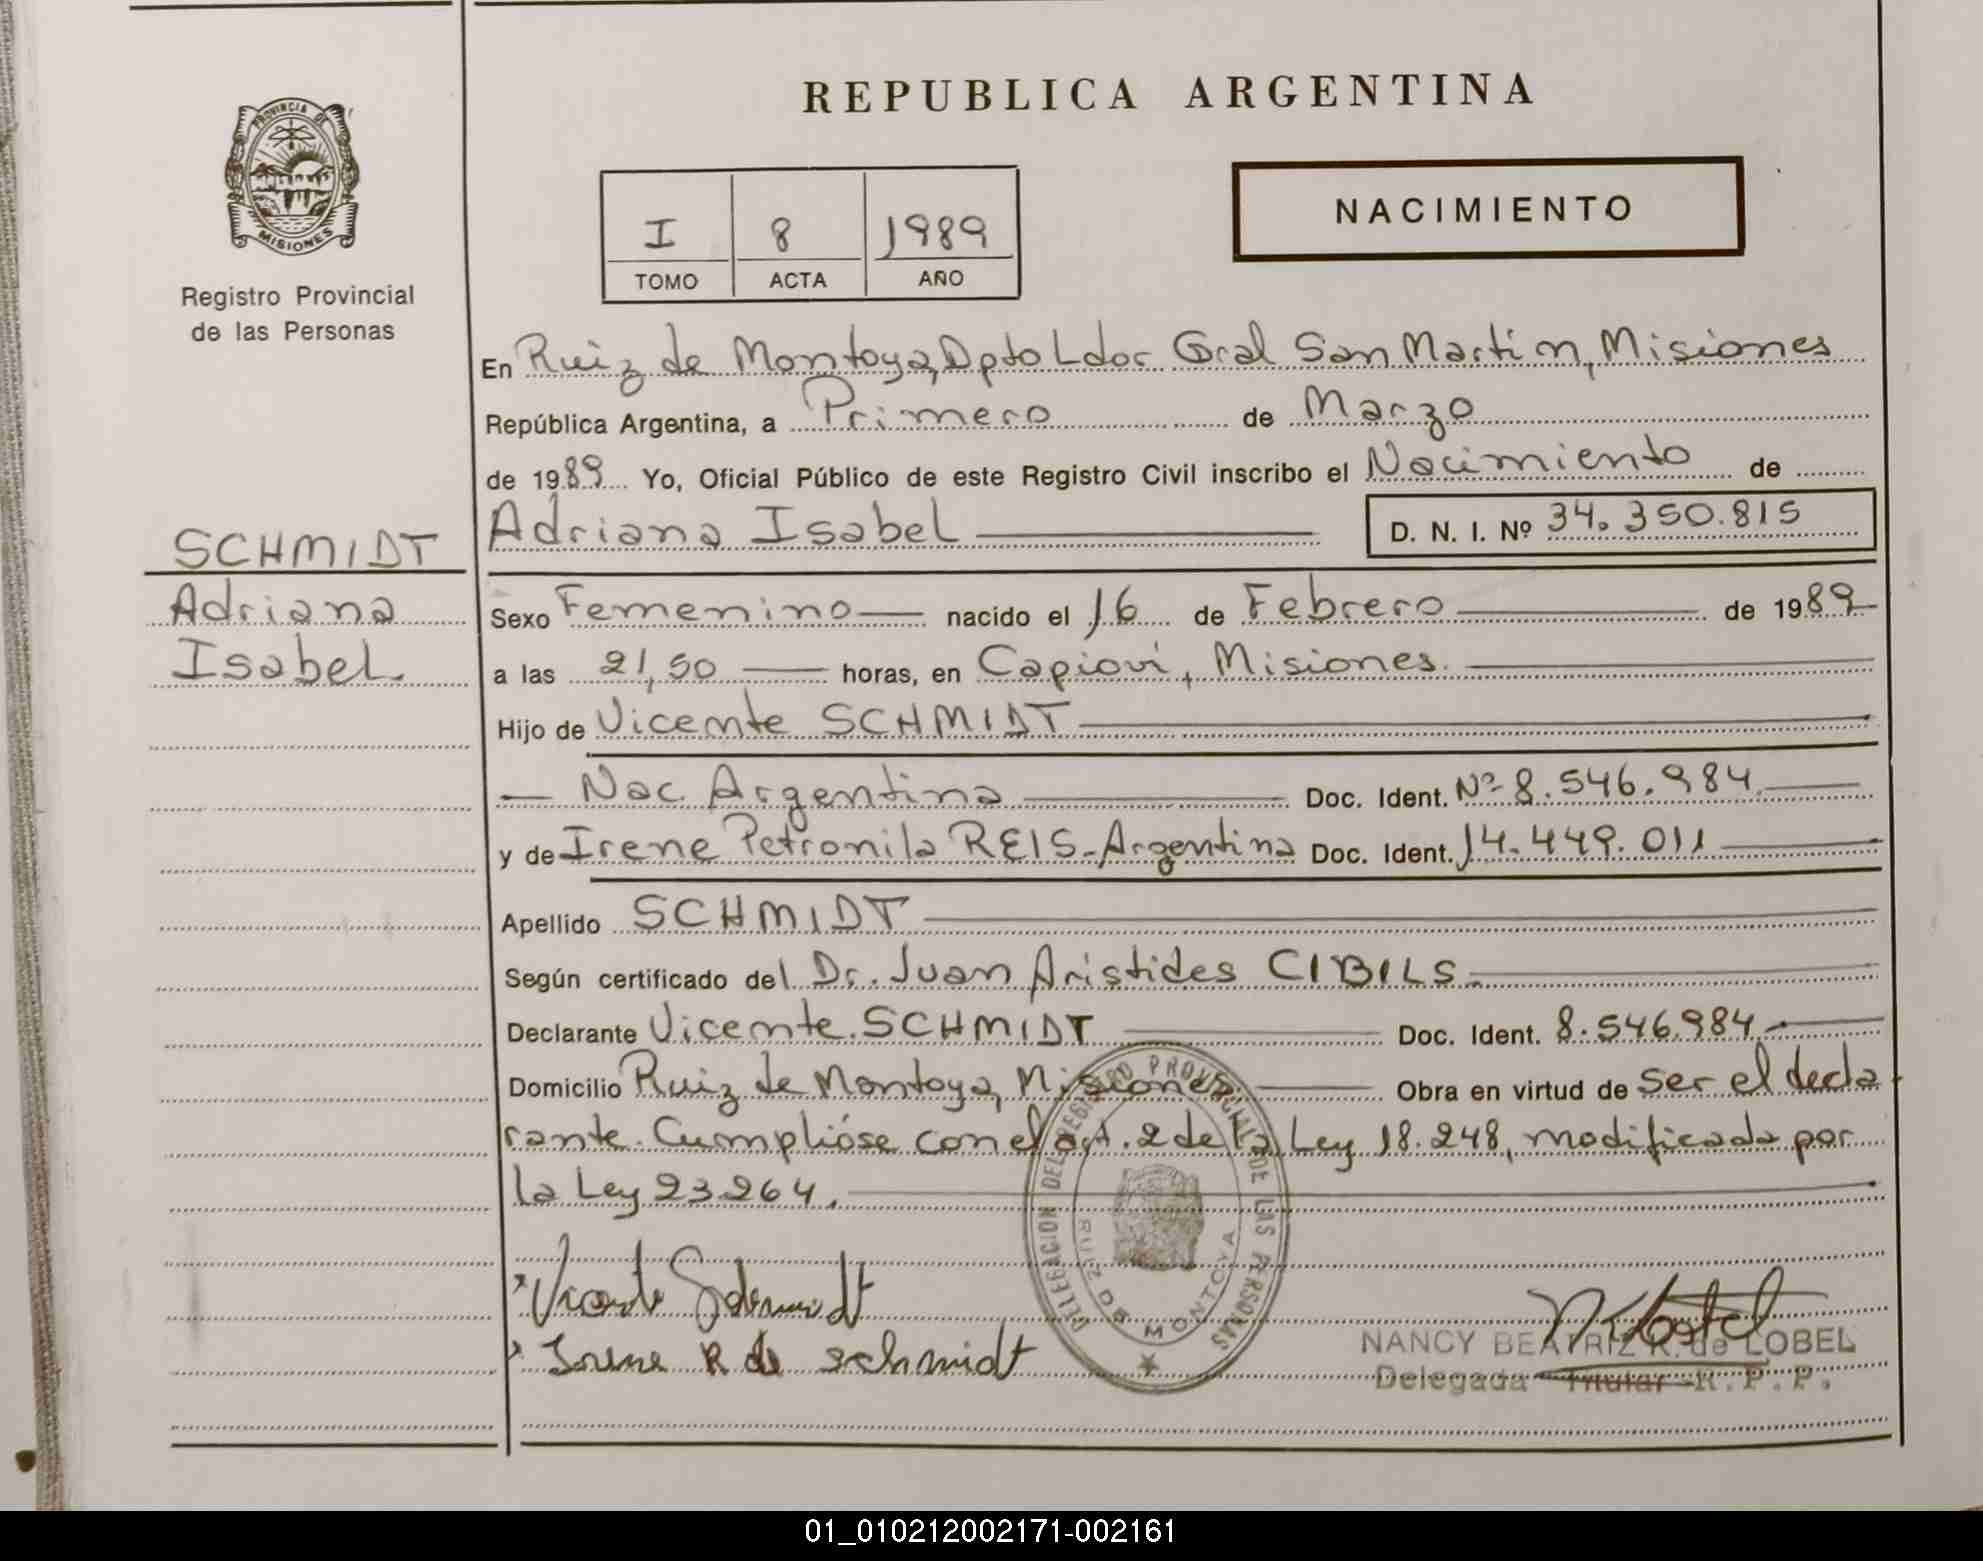 REPUBLICA ARGENTINA
PROVINCIA DE
MISIONES
Registro Provincial
de las Personas
I 8 1989
TOMO ACTA AÑO
NACIMIENTO
En Ruiz de Montoya, Dpto Ldor. Gral San Martin, Misiones
República Argentina, a Primero de Marzo
de 1989 Yo, Oficial Público de este Registro Civil inscribo el Nacimiento de
Adriana Isabel D. N. I. Nº 34.350.815
SCHMIDT
Adriana
Isabel.
Sexo Femenino nacido el 16 de Febrero de 1989
a las 21,50 horas, en Capioví, Misiones.
Hijo de Vicente SCHMIDT
Nac. Argentina Doc. Ident. Nº 8.546.984
y de Irene Petronila REIS-Argentina Doc. Ident. 14.449.011
Apellido SCHMIDT
Según certificado del Dr. Juan Aristides CIBILS.
Declarante Vicente SCHMIDT Doc. Ident. 8.546.984
Domicilio Ruiz de Montoya, Misiones Obra en virtud de ser el decla
rante. Cumplióse con el art. 2 de la Ley 18.248, modificada por
la Ley 23.264.
DELEGACION DEL REGISTRO PROVINCIAL DE LAS PERSONAS
RUIZ DE MONTOYA
Vicente Schmidt
Irene R de Schmidt
NANCY BEATRIZ R. de LOBEL
Delegada Titular R.P.P.
01_010212002171-002161